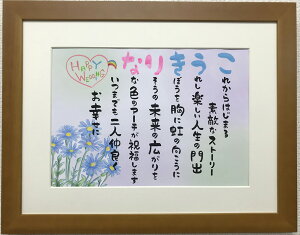 これからはじまる
素敵なストーリー
うれし楽しい人生の門出
きぼうを胸に虹の向こうに
りそうの未来の広がりを
なな色のアーチが祝福します
いつまでも二人仲良く
お幸せに
HAPPY
WEDDING